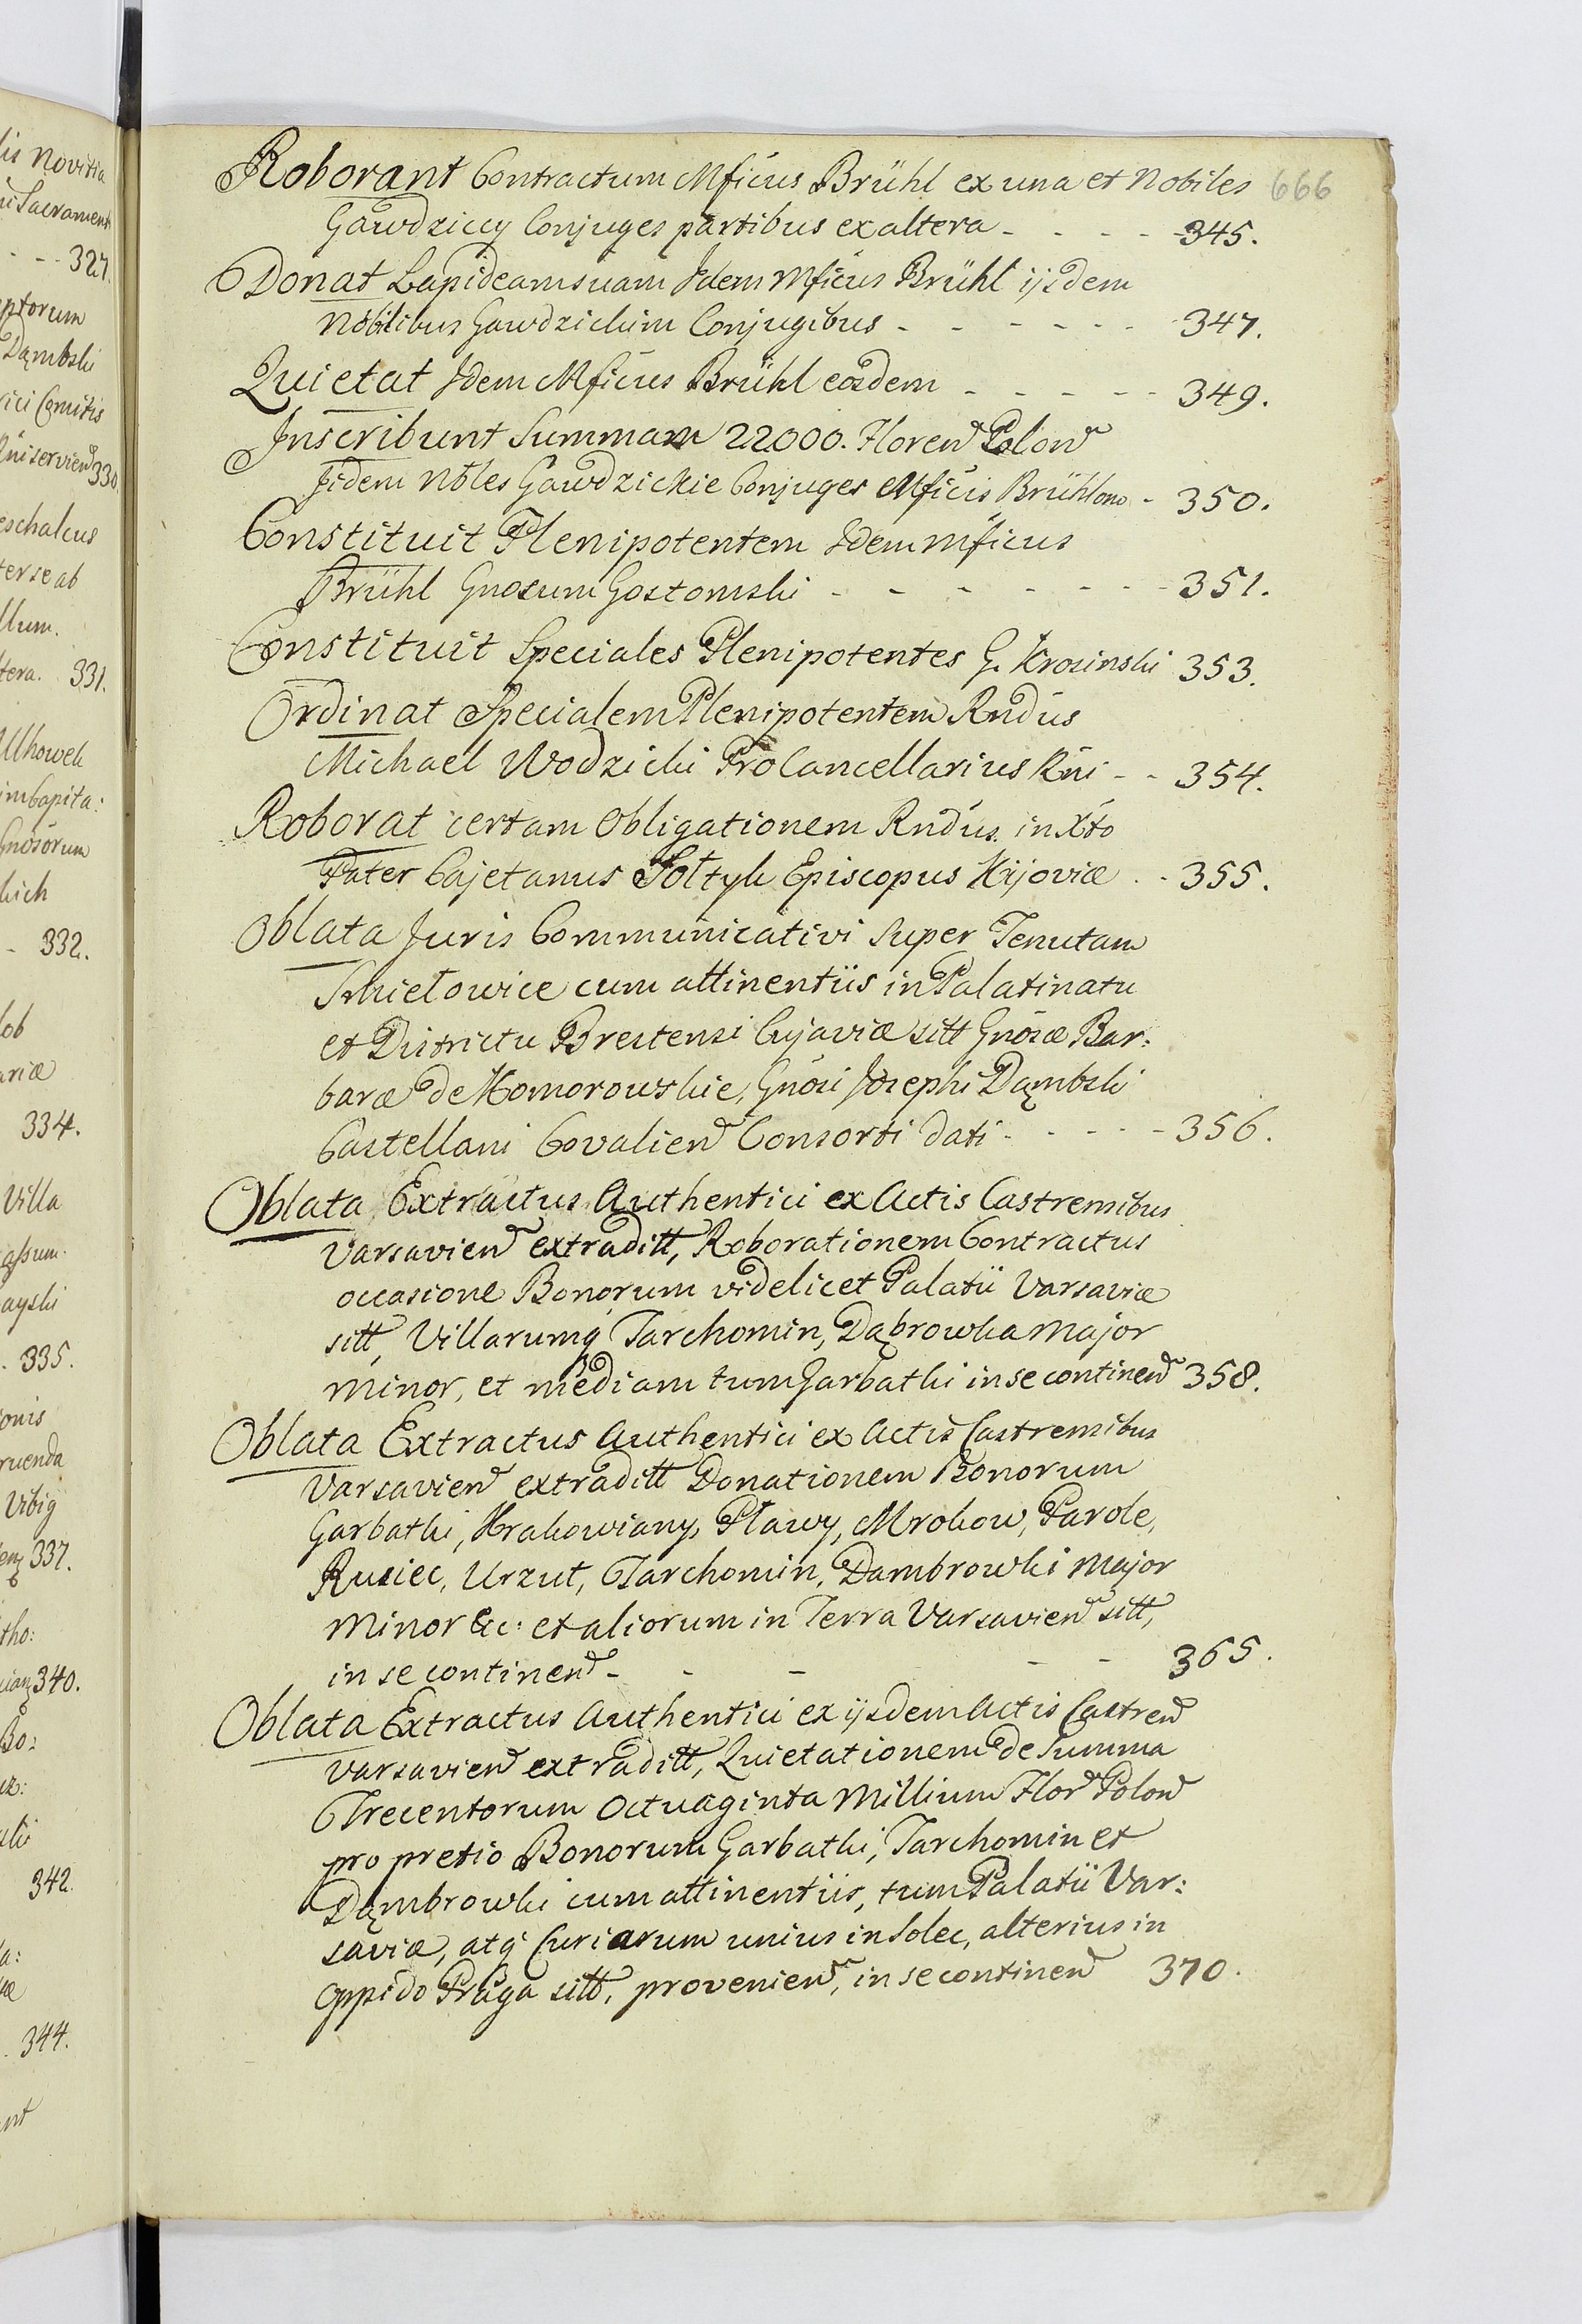 Roborant Contractum Mficus Brühl ex una et Nobiles 666
Gawdziccy Conjuges partibus ex altera - - - - - 345.
Donat Lapideam suam Idem Mficus Brühl ijsdem
Nobilibus Gawdzickim Conjugibus - - - - - - 347.
Quietat Idem Mficus Brühl eosdem - - - - - 349.
Inscribunt Summam 22000. Floren Polon
Jidem Nobles Gawdzickie Conjuges Mficis Brühlom - 350.
Constituit Plenipotentem Idem Mficus
Brühl Gnosum Gostomski - - - - - - 351.
Constituit Speciales Plenipotentes G. Krosinski 353.
Ordinat Specialem Plenipotentem Rndus
Michael Wodzicki ProCancellarius Rni - - 354.
Roborat certam Obligationem Rndus. in Xto
Pater Cajetanus Sołtyk Episcopus Kijoviæ . - 355.
Oblata Juris Communicativi super Tenutam
Smiełowice cum attinentiis in Palatinatu
et Districtu Brestensi Cujaviæ sitt Gnosæ Bar:
baræ de Komorowskie, Gnosi Josephi Dąmbski
Castellani Covalien Consorti dati - - - - - 356.
Oblata Extractus Authentici ex Actis Castrensibus
Varsavien extraditt, Roborationem Contractus
occasione Bonorum videlicet Palatii Varsaviæ
sitt, Villarumq Tarchomin, Dąbrowka Major
Minor, et mediam tum Garbatki in se continen 358.
Oblata Extractus Authentici ex Actis Castrensibus
Varsavien extraditt Donationem Bonorum
Garbatki, Krakowiany, Pławy, Mrokow, Parole,
Rusiec, Urzut, Tarchomin, Dambrowki Major
Minor &c: et aliorum in Terra Varsavien sitt,
in se continen - - - - - 365.
Oblata Extractus Authentici ex ijsdem Actis Castren
Varsavien extraditt, Quietationem de Summa
Trecentorum Octuaginta Millium Flor Polon
pro pretio Bonorum Garbatki, Tarchomin et
Dąmbrowki cum attinentiis, tum Palatii Var:
saviæ, atq Curiarum unius in Solec, alterius in
Oppido Praga sitt, provenien, in se continen 370.